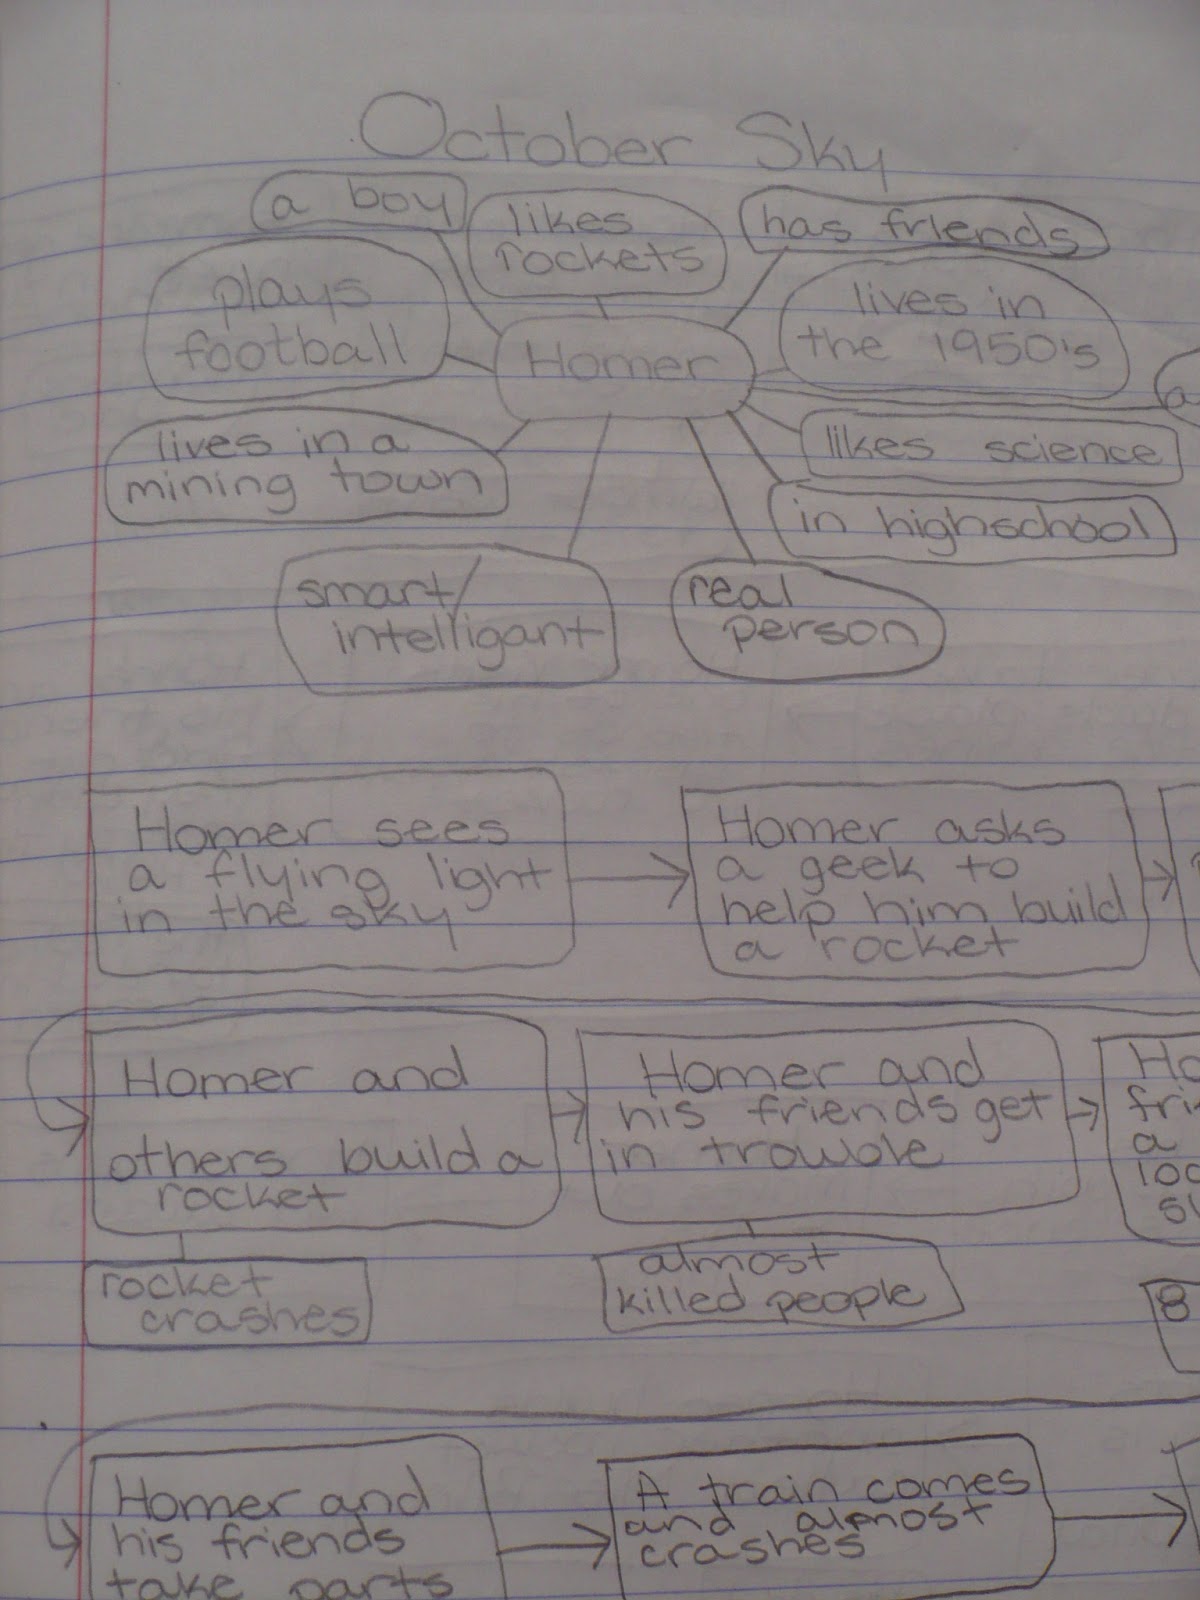 October Sky
a boy
likes
rockets
has friends
plays
football
Homer
lives in
the 1950's
a
lives in a
mining town
likes science
in highschool
smart/
intelligant
real
person
Homer sees
a flying light
in the sky
Homer asks
a geek to
help him build
a rocket
Homer and
others build a
rocket
Homer and
his friends get
in trouble
Ho
fri
a
100
sl
rocket
crashes
almost
killed people
8
Homer and
his friends
take parts
A train comes
and almost
crashes